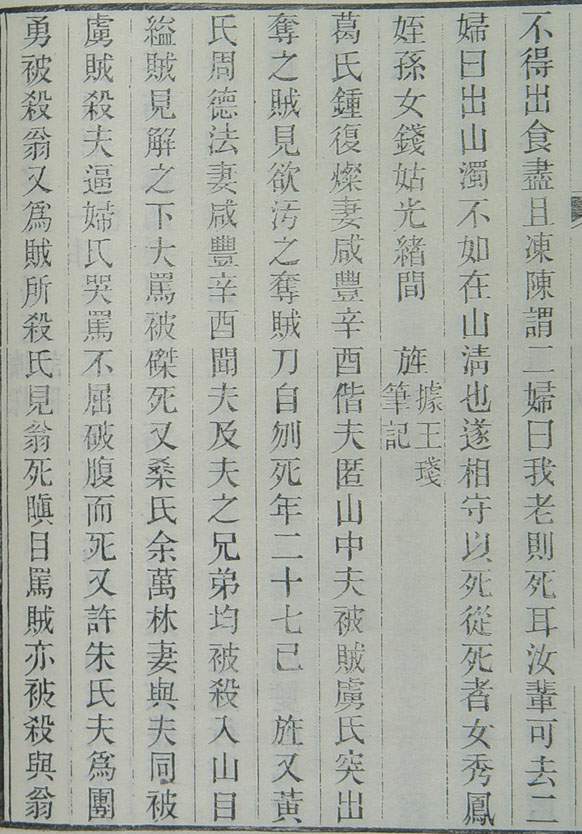 不得出食盡且凍陳謂二婦曰我老則死耳汝輩可去二
婦曰出山濁不如在山清也遂相守以死從死者女秀鳳
姪孫女錢姑光緒間　旌據王琖筆記
葛氏鍾復燦妻咸豐辛酉偕夫匿山中夫被賊虜氏突出
奪之賊見欲汚之奪賊刀自刎死年二十七已　旌又黃
氏周德法妻咸豐辛酉聞夫及夫之兄弟均被殺入山自
縊賊見解之下大罵被磔死又桑氏余萬林妻與夫同被
虜賊殺夫逼婦氏哭罵不屈破腹而死又許朱氏夫爲團
勇被殺翁又爲賊所殺氏見翁死瞋目罵賊亦被殺與翁